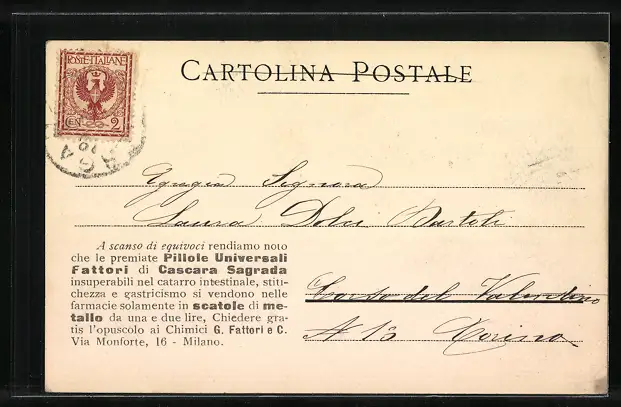 POSTE ITALIANE
CEN. 2
CARTOLINA POSTALE
Egregia Signora
Laura Dolci Bartoli
A scanso di equivoci rendiamo noto
che le premiate Pillole Universali
Fattori di Cascara Sagrada
insuperabili nel catarro intestinale, stiti-
chezza e gastricismo si vendono nelle
farmacie solamente in scatole di me-
tallo da una e due lire, Chiedere gra-
tis l'opuscolo ai Chimici G. Fattori e C.
Via Monforte, 16 - Milano.
Corso del Valentino
Torino